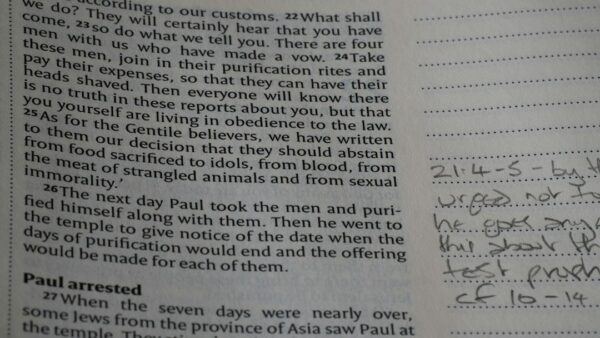 according to our customs. 22 What shall
we do? They will certainly hear that you have
come, 23 so do what we tell you. There are four
men with us who have made a vow. 24 Take
these men, join in their purification rites and
pay their expenses, so that they can have their
heads shaved. Then everyone will know there
is no truth in these reports about you, but that
you yourself are living in obedience to the law.
25 As for the Gentile believers, we have written
to them our decision that they should abstain
from food sacrificed to idols, from blood, from
the meat of strangled animals and from sexual
immorality.’
26 The next day Paul took the men and puri-
fied himself along with them. Then he went to
the temple to give notice of the date when the
days of purification would end and the offering
would be made for each of them.
Paul arrested
27 When the seven days were nearly over,
some Jews from the province of Asia saw Paul at
the temple.
21:4-5 - by th
urged not to
he goes any
this about th
test proph
cf 10-14